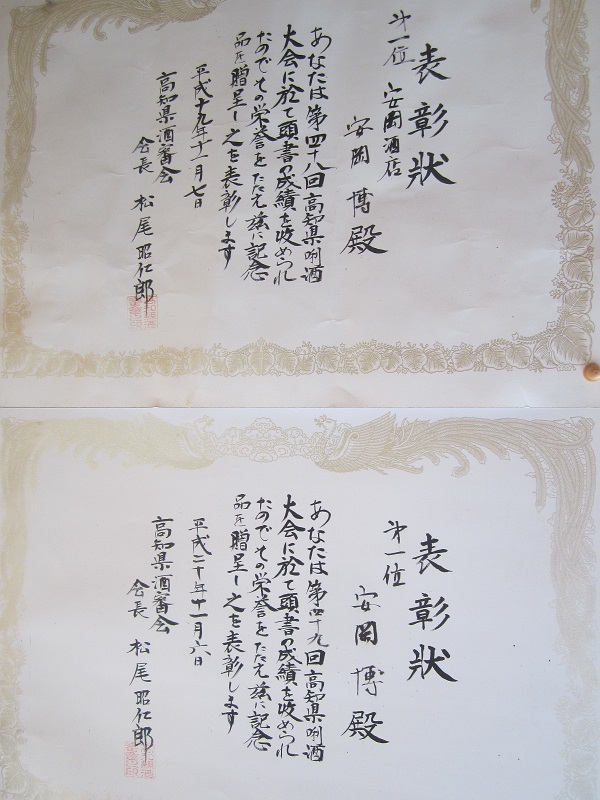 表彰状
第一位 安岡酒店
安岡 博殿
あなたは第四十八回高知県唎酒
大会に於て頭書の成績を収められ
たのでその栄誉をたたえ茲に記念
品を贈呈し之を表彰します
平成十九年十一月七日
高知県酒審会
会長 松尾昭仁郎
表彰状
第一位
安岡 博殿
あなたは第四十九回高知県唎酒
大会に於て頭書の成績を収められ
たのでその栄誉をたたえ茲に記念
品を贈呈し之を表彰します
平成二十年十一月六日
高知県酒審会
会長 松尾昭仁郎